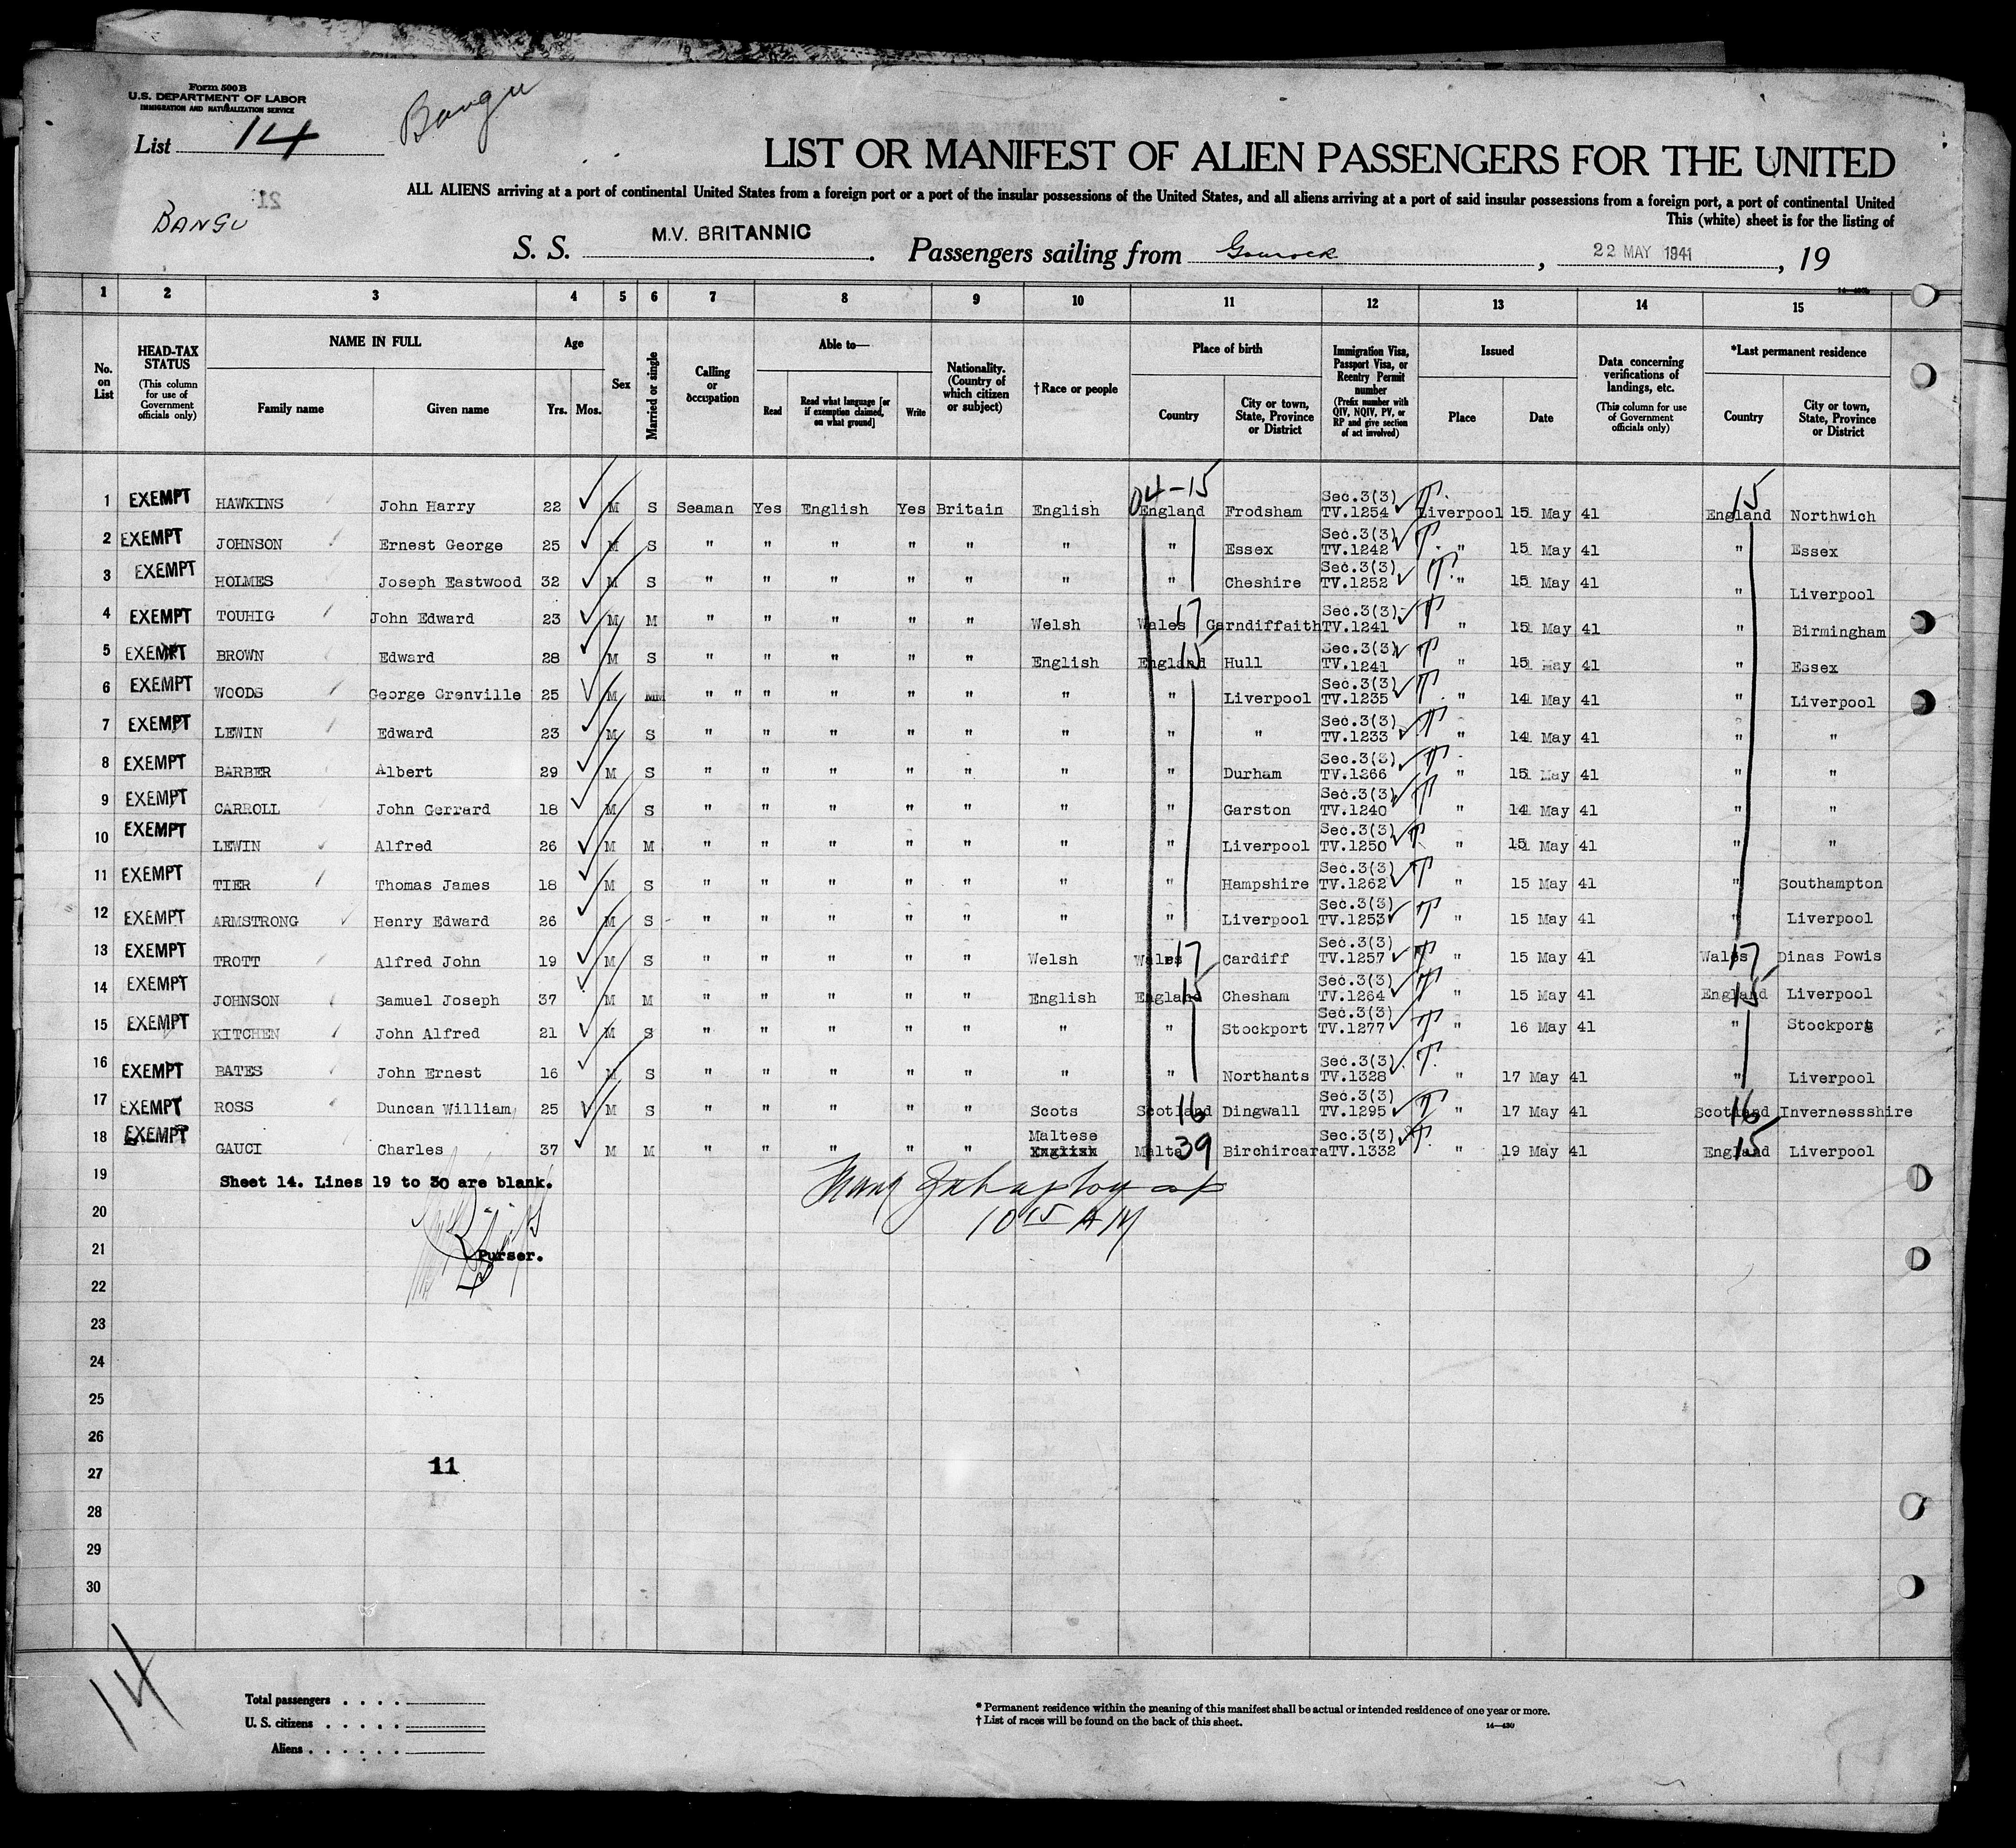 Form 500 B
U.S. DEPARTMENT OF LABOR
IMMIGRATION AND NATURALIZATION SERVICE
List 14
Bangu
LIST OR MANIFEST OF ALIEN PASSENGERS FOR THE UNITED
ALL ALIENS arriving at a port of continental United States from a foreign port or a port of the insular possessions of the United States, and all aliens arriving at a port of said insular possessions from a foreign port, a port of continental United
This (white) sheet is for the listing of
BANGU
S. S. M.V. BRITANNIC. Passengers sailing from Gourock, 22 MAY 1941, 19
1 2 3 4 5 6 7 8 9 10 11 12 13 14 15
No. on List
HEAD-TAX STATUS (This column for use of Government officials only)
NAME IN FULL Family name Given name
Age Yrs. Mos.
Sex
Married or single
Calling or occupation
Able to— Read Read what language [or if exemption claimed, on what ground] Write
Nationality. (Country of which citizen or subject)
†Race or people
Place of birth Country City or town, State, Province or District
Immigration Visa, Passport Visa, or Reentry Permit number (Prefix number with QIV, NQIV, PV, or RP and give section of act involved)
Issued Place Date
Data concerning verifications of landings, etc. (This column for use of Government officials only)
*Last permanent residence Country City or town, State, Province or District
04-15 15
1 EXEMPT HAWKINS John Harry 22 M S Seaman Yes English Yes Britain English England Frodsham Sec.3(3) TV.1254 Liverpool 15 May 41 England Northwich
2 EXEMPT JOHNSON Ernest George 25 M S " " " " " " " Essex Sec.3(3) TV.1242 " 15 May 41 " Essex
3 EXEMPT HOLMES Joseph Eastwood 32 M S " " " " " " " Cheshire Sec.3(3) TV.1252 " 15 May 41 " Liverpool
4 EXEMPT TOUHIG John Edward 23 M M " " " " " Welsh Wales 17 Garndiffaith Sec.3(3) TV.1241 " 15 May 41 " Birmingham
5 EXEMPT BROWN Edward 28 M S " " " " " English England 15 Hull Sec.3(3) TV.1241 " 15 May 41 " Essex
6 EXEMPT WOODS George Grenville 25 M MM " " " " " " " " Liverpool Sec.3(3) TV.1235 " 14 May 41 " Liverpool
7 EXEMPT LEWIN Edward 23 M S " " " " " " " " Sec.3(3) TV.1233 " 14 May 41 " "
8 EXEMPT BARBER Albert 29 M S " " " " " " " Durham Sec.3(3) TV.1266 " 15 May 41 " "
9 EXEMPT CARROLL John Gerrard 18 M S " " " " " " " Garston Sec.3(3) TV.1240 " 14 May 41 " "
10 EXEMPT LEWIN Alfred 26 M M " " " " " " " Liverpool Sec.3(3) TV.1250 " 15 May 41 " "
11 EXEMPT TIER Thomas James 18 M S " " " " " " " Hampshire Sec.3(3) TV.1262 " 15 May 41 " Southampton
12 EXEMPT ARMSTRONG Henry Edward 26 M S " " " " " " " Liverpool Sec.3(3) TV.1253 " 15 May 41 " Liverpool
13 EXEMPT TROTT Alfred John 19 M S " " " " " Welsh Wales 17 Cardiff Sec.3(3) TV.1257 " 15 May 41 Wales 17 Dinas Powis
14 EXEMPT JOHNSON Samuel Joseph 37 M M " " " " " English England 15 Chesham Sec.3(3) TV.1264 " 15 May 41 England 15 Liverpool
15 EXEMPT KITCHEN John Alfred 21 M S " " " " " " " Stockport Sec.3(3) TV.1277 " 16 May 41 " Stockport
16 EXEMPT BATES John Ernest 16 M S " " " " " " " Northants Sec.3(3) TV.1328 " 17 May 41 " Liverpool
17 EXEMPT ROSS Duncan William 25 M S " " " " " Scots Scotland 16 Dingwall Sec.3(3) TV.1295 " 17 May 41 Scotland 16 Invernessshire
18 EXEMPT GAUCI Charles 37 M M " " " " " Maltese English Malta 39 Birchircara Sec.3(3) TV.1332 " 19 May 41 England 15 Liverpool
19 Sheet 14. Lines 19 to 30 are blank.
20 10 15 AM
21 Purser.
22
23
24
25
26
27 11
28
29
30
14
Total passengers . . . .
U. S. citizens . . . . .
Aliens . . . . . .
* Permanent residence within the meaning of this manifest shall be actual or intended residence of one year or more.
† List of races will be found on the back of this sheet.
14—430